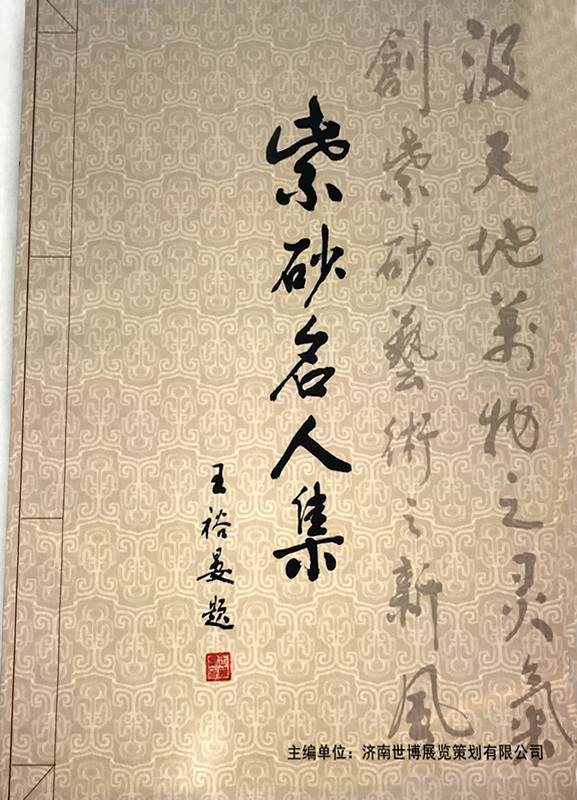 汲天地萬物之灵氣
創紫砂藝術之新風
紫砂名人集
王裕晏题
主编单位：济南世博展览策划有限公司